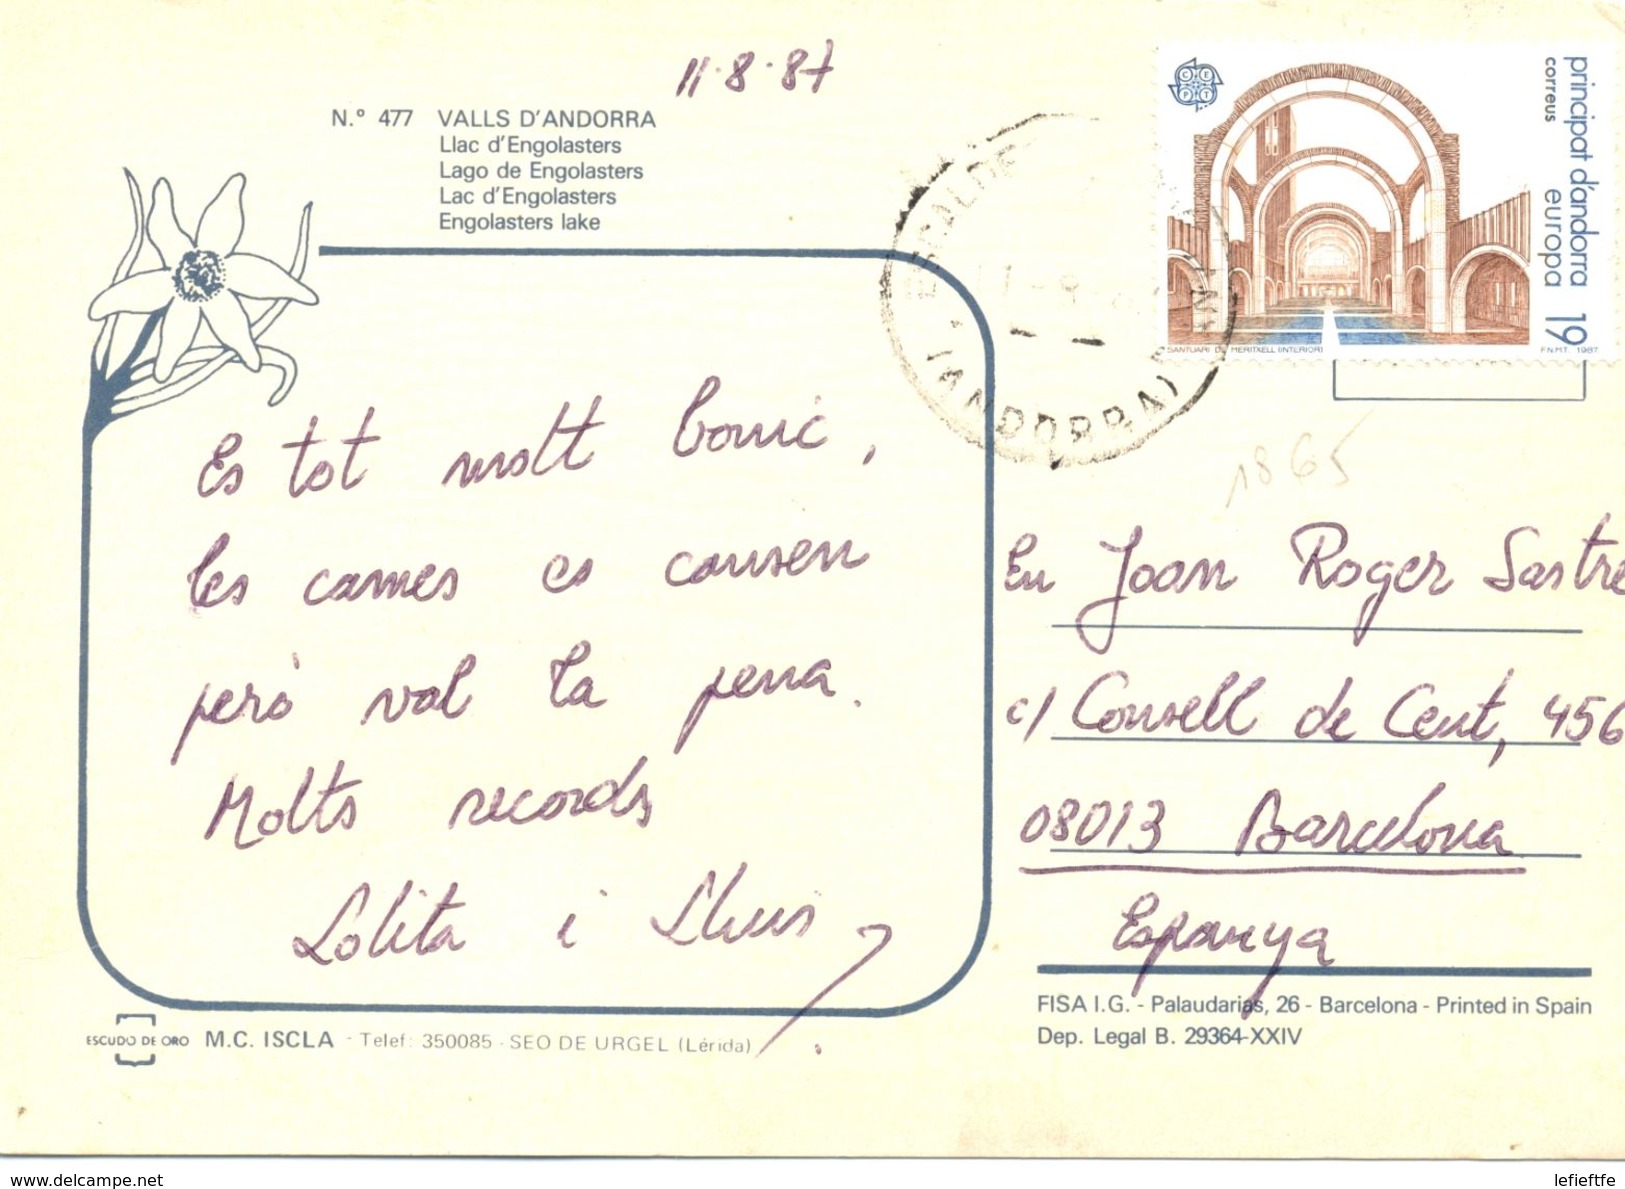 11-8-87
N.º 477 VALLS D'ANDORRA
Llac d'Engolasters
Lago de Engolasters
Lac d'Engolasters
Engolasters lake
principat d'andorra
correus
europa 19
CEPT
SANTUARI DE MERITXELL (INTERIOR)
F.N.M.T. 1987
(ANDORRA)
1865
Es tot molt bonic,
les cames es cansen
però val la pena.
Molts records
Lolita i Lluis
En Joan Roger Sastre
c/ Consell de Cent, 456
08013 Barcelona
Espanya
FISA I.G. - Palaudarias, 26 - Barcelona - Printed in Spain
Dep. Legal B. 29364-XXIV
ESCUDO DE ORO M.C. ISCLA - Telef: 350085 - SEO DE URGEL (Lérida)
delcampe.net
lefieftfe